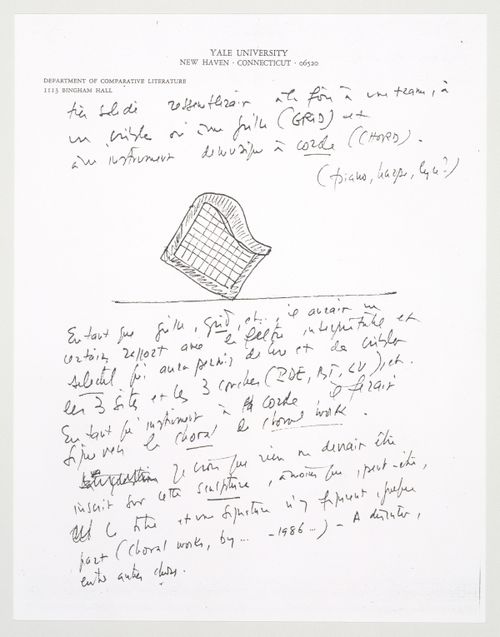 YALE UNIVERSITY
NEW HAVEN · CONNECTICUT · 06520
DEPARTMENT OF COMPARATIVE LITERATURE
1113 BINGHAM HALL
très solide ressemblerait à la fois à une trame, à
un crible ou une grille (GRID) et
à un instrument de musique à corde (CHORD).
(piano, harpe, lyre?)
En tant que grille, grid, etc., il aurait un
certain rapport avec le filtre interprétatif et
sélectif qui aura permis de lire et de cribler
les 3 sites et les 3 couches (PDE, BT, LV), etc.
En tant qu'instrument à corde il ferait
signe vers le choral de choral work.
Je crois que rien ne devrait être
inscrit sur cette sculpture, à moins que, peut-être,
le titre et une signature n'y figurent, quelque
part (Choral works, by... -1986...) - A discuter,
entre autres choses.